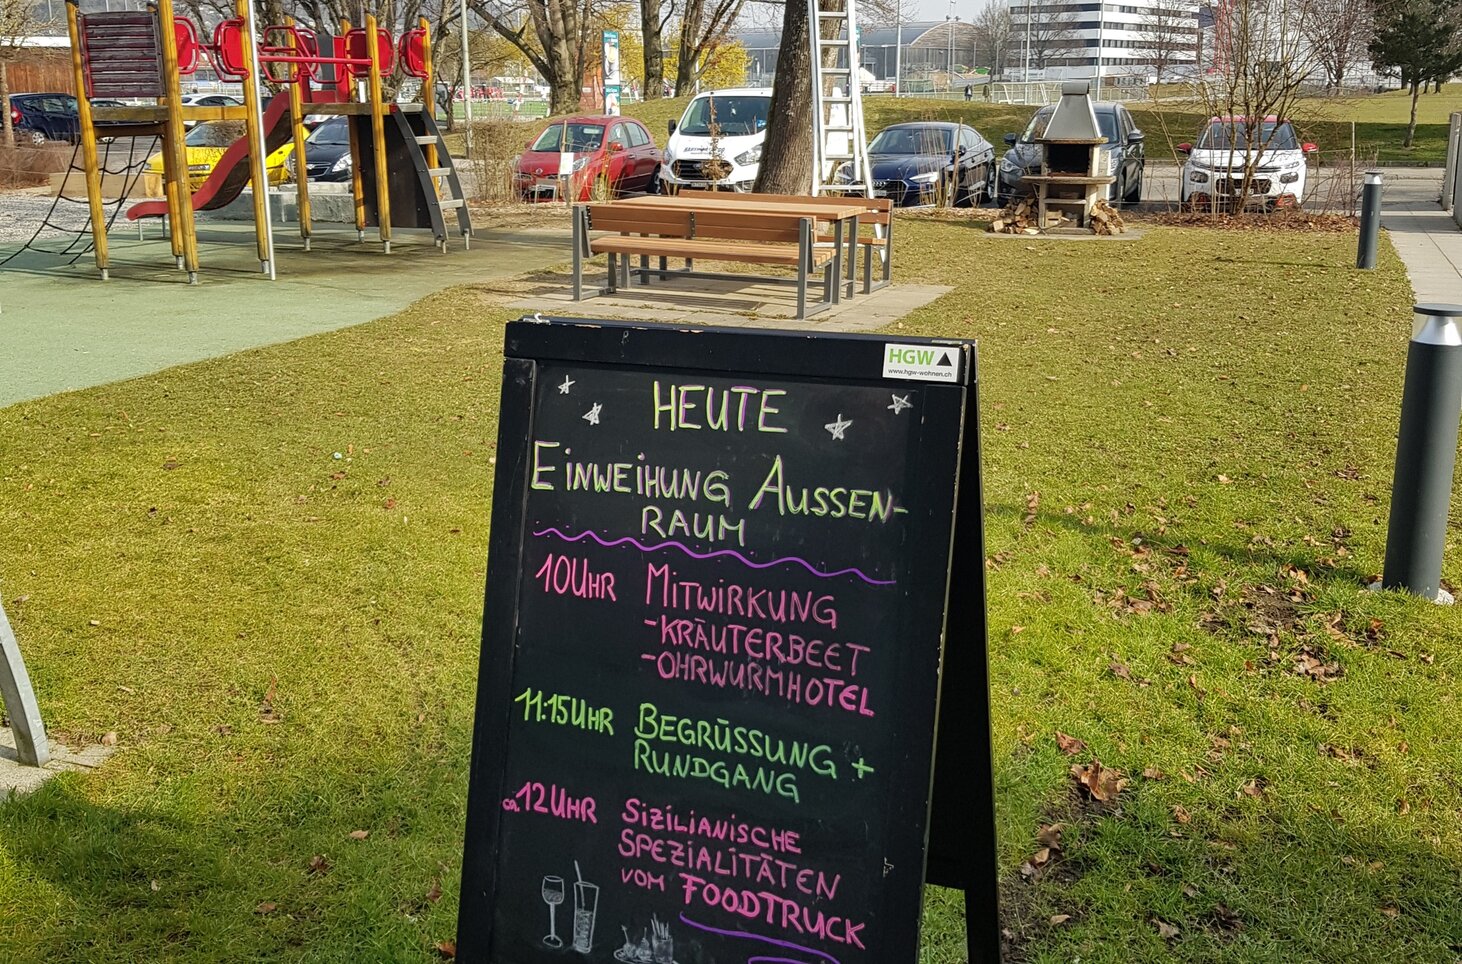 HGW
www.hgw-wohnen.ch
HEUTE
EINWEIHUNG AUSSEN-
RAUM
10UHR MITWIRKUNG
-KRÄUTERBEET
-OHRWURMHOTEL
11:15UHR BEGRÜSSUNG +
RUNDGANG
ca. 12UHR SIZILIANISCHE
SPEZIALITÄTEN
VOM FOODTRUCK